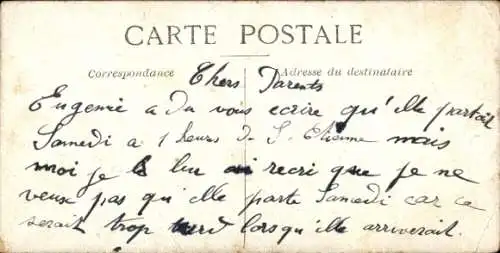 CARTE POSTALE
Correspondance
Adresse du destinataire
Chers Parents
Eugenie a du vous ecrire qu'elle partait
Samedi a 1 heurs de S. Etienne mais
moi je lui ai recri que je ne
veux pas qu'elle parte Samedi car ce
serait trop tard lorsqu'elle arriverait.